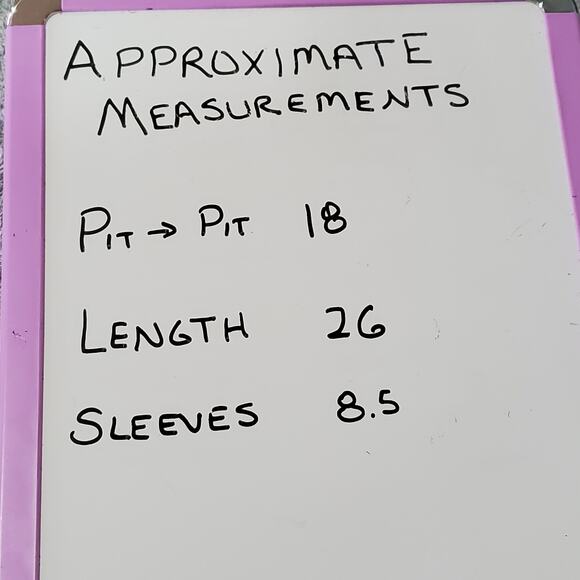 APPROXIMATE
MEASUREMENTS
PIT → PIT 18
LENGTH 26
SLEEVES 8.5